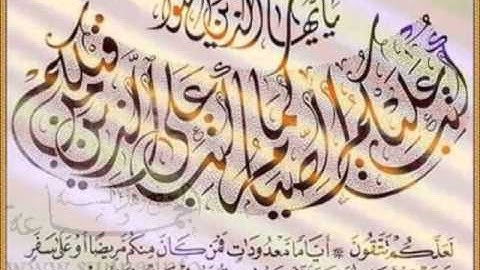 يا أيها الذين آمنوا
كتب عليكم الصيام كما كتب على الذين من قبلكم
لَعَلَّكُمْ تَتَّقُونَ أَيَّامًا مَعْدُودَاتٍ فَمَنْ كَانَ مِنْكُمْ مَرِيضًا أَوْ عَلَى سَفَرٍ